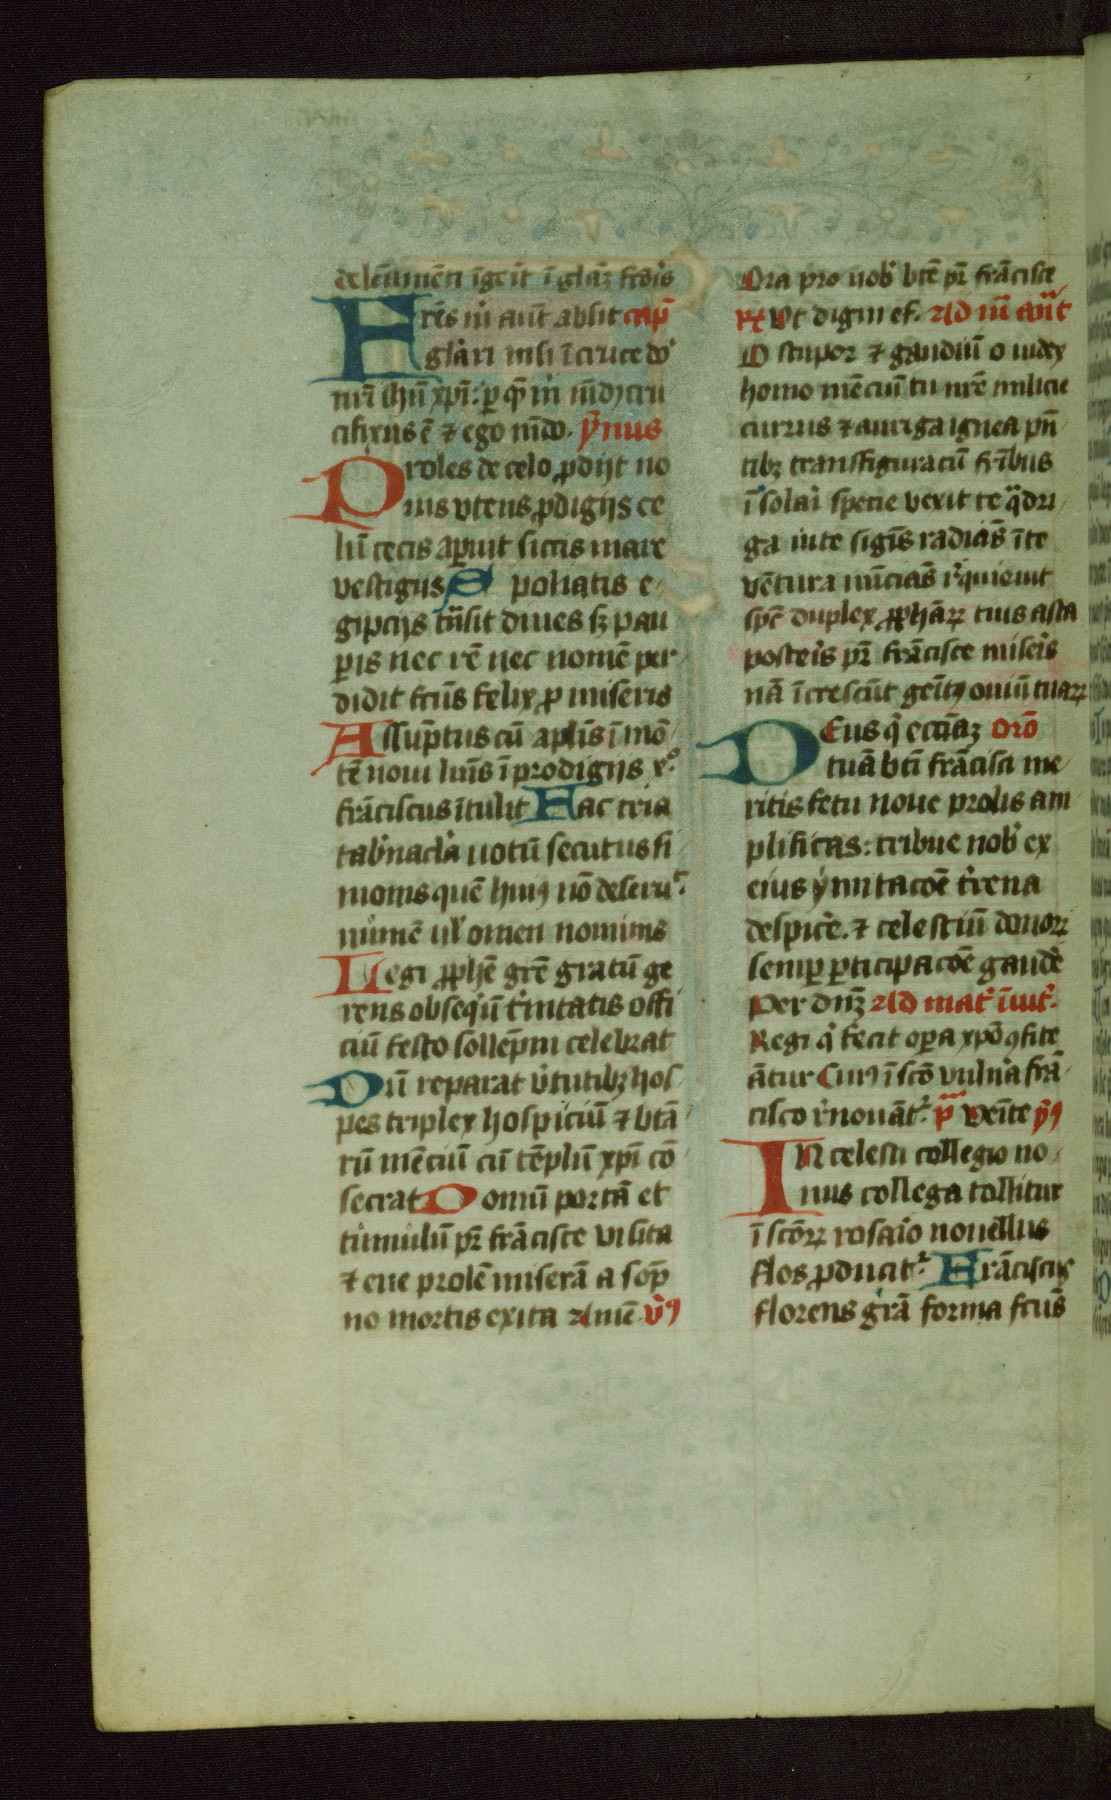 delectamēti īgeit ī gl'āz fr̄dis
Fr̄es m̄ aut̄ absit cap̄
gl'ari nisi ī cruce dō
nr̄i ihū xp̄i: p̄ q̄m m̄ mūdy cru
cifixus ē ⁊ ego mūdo. ȳmnus
Proles de celo ꝓdijt no
uis vtens ꝓdigijs ce
lū cecis aꝑuit siccis mare
vestigijs Spoliatis e
gipcijs trāsit diues sꝫ pau
ꝑis nec rē nec nomē per
didit fcūs felix ꝓ miseris
Assūptus cū aplīs ī mō
tē noui lūis ī prodigijs xᵒ
frāciscus ītulit Hac tria
tab'nac'la uotū secutus si
monis quē huiꝰ nō deserit
nūmē ul' omen nominis
Legi ꝓphē grē gratū ge
rens obseq'ū t'nitatis offi
ciū festo sollēpni celebrat
Dū reparat v'tutibꝫ hos
pes triplex hospiciū ⁊ btā
rū mēciū cū tēplū xp̄i cō
secrat Domū portā et
tūmulū pr̄ frācisce visita
⁊ eue prolē miserā a sop̄
no mortis excita Amē v̄ꝰ
Ora pro nob' btē pr̄ frācisce
℞ Vt digni ef. Ad m̄ an̄t
O stupor ⁊ gaudiū o iudex
homo mēciū tu nr̄e milicie
currus ⁊ auriga ignea pn̄
tibꝫ transfiguratū fr̄ibus
ī solari specie vexit te q̄dri
ga in te sigīs radiās ī te
vētura nūciās r'quieuit
spc̄ duplex ꝓphāꝝ tuis asta
posteris pr̄ frācisce miseris
nā īcrescūt gēitꝰ ouiū tuaꝝ
Deus q' eccīaꝫ Orō
tuā btī frācisci me
ritis fetu noue prolis am
plificas: tribue nob' ex
eius ymitacōe t'rena
despic'e. ⁊ celestiū donoꝝ
semꝑ ꝑticipacōe gaud'e
Per dn̄ꝫ Ad mat' īuit'.
Regi q' fecit oꝑa xp̄o ꝯfite
ātur Cuiꝰ ī scō vuln'a frā
cisco r'nouāt' p̄ Venīte ȳꝰ
IN celesti collegio no
uus collega tollitur
ī scōꝝ rosaio nouellus
flos ꝓducit' Frāciscus
florens gr̄a forma fcūs